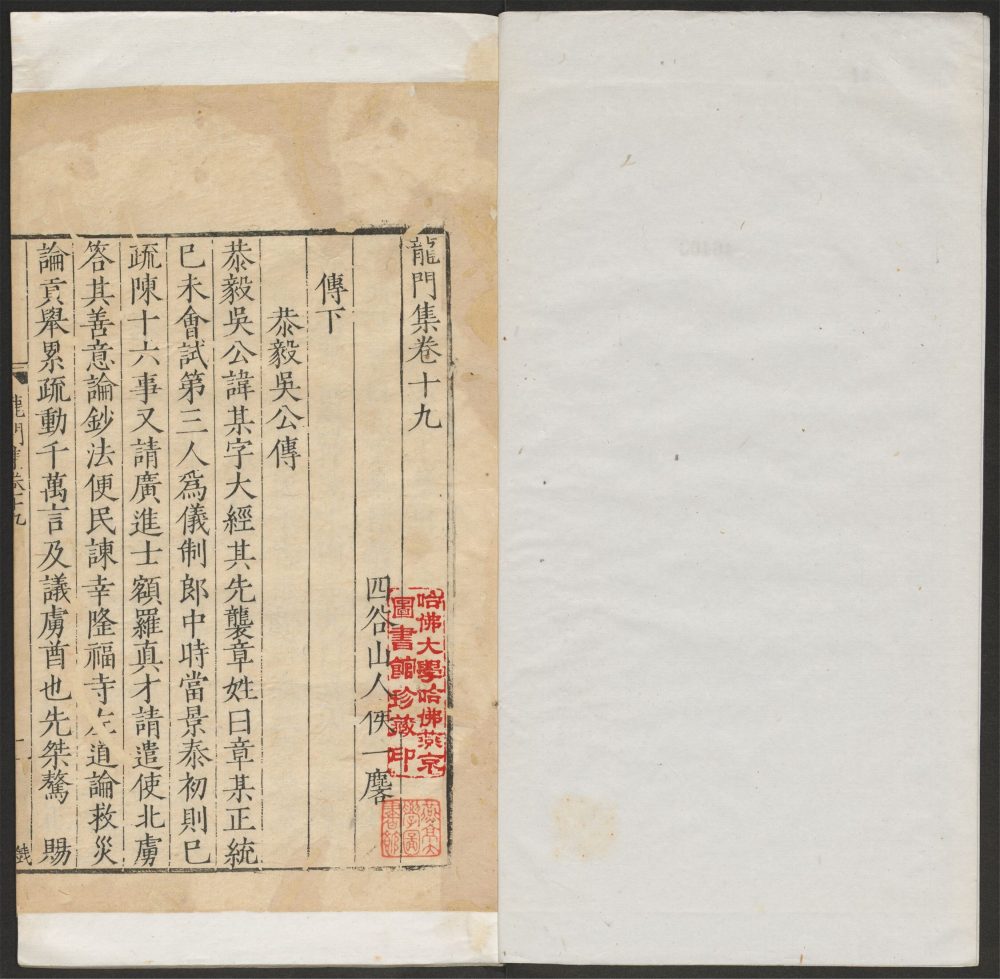 龍門集卷十九
四谷山人侯一麐
傳下
恭毅吳公傳
恭毅吳公諱某字大經其先襲章姓曰章某正統
巳未會試第三人爲儀制郎中時當景泰初則巳
疏陳十六事又請廣進士額羅真才請遣使北虜
答其善意論鈔法便民諫幸隆福寺左道論救災
論貢舉累疏動千萬言及議虜酋也先桀驁 賜
龍門集卷十九
哈佛大學哈佛燕京
圖書館珍藏印